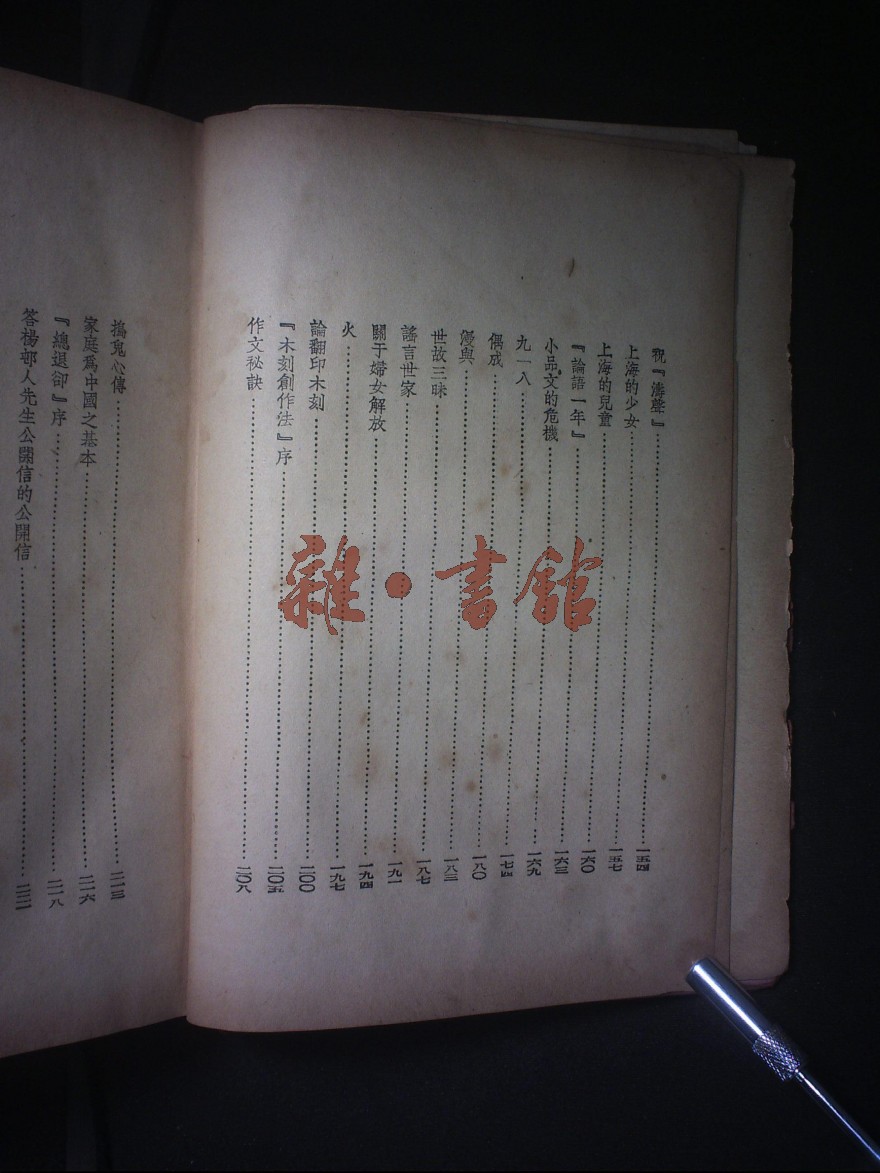 祝『濤聲』……一五四
上海的少女……一五七
上海的兒童……一六〇
『論語一年』……一六三
小品文的危機……一六九
九一八……一七四
偶成……一八〇
漫與……一八三
世故三昧……一八七
謠言世家……一九一
關于婦女解放……一九四
火……一九七
論翻印木刻……二〇〇
『木刻創作法』序……二〇五
作文秘訣……二〇八
搗鬼心傳……二一三
家庭爲中國之基本……二一六
『總退卻』序……二一八
答楊邨人先生公開信的公開信……二二一
雜·書館